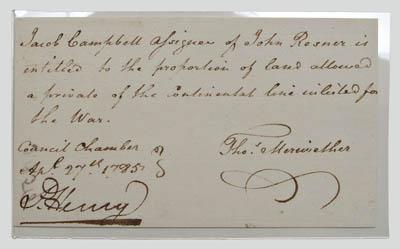 Jacob Campbell assignee of John Rosner is
entitled to the proportion of land allowed
a private of the Continental line inlisted for
the War.
Council Chamber
Apl. 27th 1785
Thos. Meriwether
P. Henry